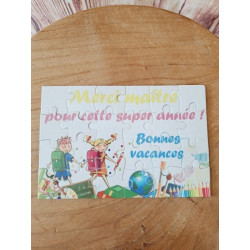 Merci maître
pour cette super année !
Bonnes
vacances